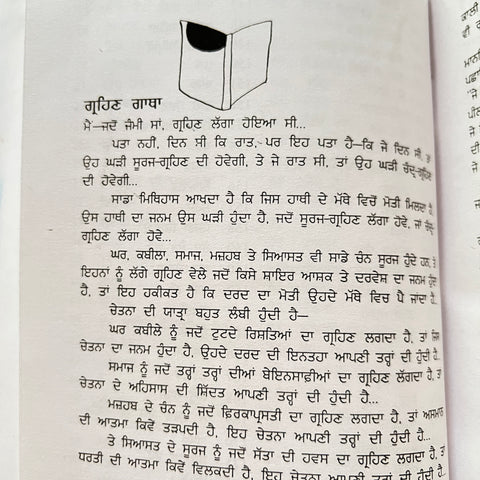 ਗ੍ਰਹਿਣ ਗਾਥਾ
ਮੈਂ–ਜਦੋਂ ਜੰਮੀ ਸਾਂ, ਗ੍ਰਹਿਣ ਲੱਗਾ ਹੋਇਆ ਸੀ...
ਪਤਾ ਨਹੀਂ, ਦਿਨ ਸੀ ਕਿ ਰਾਤ, ਪਰ ਇਹ ਪਤਾ ਹੈ–ਕਿ ਜੇ ਦਿਨ ਸੀ, ਤਾਂ
ਉਹ ਘੜੀ ਸੂਰਜ–ਗ੍ਰਹਿਣ ਦੀ ਹੋਵੇਗੀ, ਤੇ ਜੇ ਰਾਤ ਸੀ, ਤਾਂ ਉਹ ਘੜੀ ਚੰਦ੍ਰ–ਗ੍ਰਹਿਣ
ਦੀ ਹੋਵੇਗੀ...
ਸਾਡਾ ਮਿਥਿਹਾਸ ਆਖਦਾ ਹੈ ਕਿ ਜਿਸ ਹਾਥੀ ਦੇ ਮੱਥੇ ਵਿਚੋਂ ਮੋਤੀ ਮਿਲਦਾ ਹੈ
ਉਸ ਹਾਥੀ ਦਾ ਜਨਮ ਉਸ ਘੜੀ ਹੁੰਦਾ ਹੈ, ਜਦੋਂ ਸੂਰਜ–ਗ੍ਰਹਿਣ ਲੱਗਾ ਹੋਵੇ, ਜਾਂ ਚੰਦ੍ਰ–
ਗ੍ਰਹਿਣ ਲੱਗਾ ਹੋਵੇ...
ਘਰ, ਕਬੀਲਾ, ਸਮਾਜ, ਮਜ਼ਹਬ ਤੇ ਸਿਆਸਤ ਵੀ ਸਾਡੇ ਚੰਨ ਸੂਰਜ ਹੁੰਦੇ ਹਨ, ਤੇ
ਇਹਨਾਂ ਨੂੰ ਲੱਗੇ ਗ੍ਰਹਿਣ ਵੇਲੇ ਜਦੋਂ ਕਿਸੇ ਸ਼ਾਇਰ ਆਸ਼ਕ ਤੇ ਦਰਵੇਸ਼ ਦਾ ਜਨਮ ਹੁੰਦਾ
ਹੈ, ਤਾਂ ਇਹ ਹਕੀਕਤ ਹੈ ਕਿ ਦਰਦ ਦਾ ਮੋਤੀ ਉਹਦੇ ਮੱਥੇ ਵਿਚ ਪੈ ਜਾਂਦਾ ਹੈ...
ਚੇਤਨਾ ਦੀ ਯਾਤ੍ਰਾ ਬਹੁਤ ਲੰਬੀ ਹੁੰਦੀ ਹੈ—
ਘਰ ਕਬੀਲੇ ਨੂੰ ਜਦੋਂ ਟੁਟਦੇ ਰਿਸ਼ਤਿਆਂ ਦਾ ਗ੍ਰਹਿਣ ਲਗਦਾ ਹੈ, ਤਾਂ ਜਿਸ
ਚੇਤਨਾ ਦਾ ਜਨਮ ਹੁੰਦਾ ਹੈ, ਉਹਦੇ ਦਰਦ ਦੀ ਇਨਤਹਾ ਆਪਣੀ ਤਰ੍ਹਾਂ ਦੀ ਹੁੰਦੀ ਹੈ...
ਸਮਾਜ ਨੂੰ ਜਦੋਂ ਤਰ੍ਹਾਂ ਤਰ੍ਹਾਂ ਦੀਆਂ ਬੇਇਨਸਾਫ਼ੀਆਂ ਦਾ ਗ੍ਰਹਿਣ ਲੱਗਦਾ ਹੈ, ਤਾਂ
ਚੇਤਨਾ ਦੇ ਅਹਿਸਾਸ ਦੀ ਸ਼ਿੱਦਤ ਆਪਣੀ ਤਰ੍ਹਾਂ ਦੀ ਹੁੰਦੀ ਹੈ...
ਮਜ਼ਹਬ ਦੇ ਚੰਨ ਨੂੰ ਜਦੋਂ ਫ਼ਿਰਕਾਪ੍ਰਸਤੀ ਦਾ ਗ੍ਰਹਿਣ ਲਗਦਾ ਹੈ, ਤਾਂ ਅਸਮਾਨ
ਦੀ ਆਤਮਾ ਕਿਵੇਂ ਤੜਪਦੀ ਹੈ, ਇਹ ਚੇਤਨਾ ਆਪਣੀ ਤਰ੍ਹਾਂ ਦੀ ਹੁੰਦੀ ਹੈ...
ਤੇ ਸਿਆਸਤ ਦੇ ਸੂਰਜ ਨੂੰ ਜਦੋਂ ਸੱਤਾ ਦੀ ਹਵਸ ਦਾ ਗ੍ਰਹਿਣ ਲਗਦਾ ਹੈ, ਤਾਂ
ਧਰਤੀ ਦੀ ਆਤਮਾ ਕਿਵੇਂ ਵਿਲਕਦੀ ਹੈ, ਇਹ ਚੇਤਨਾ ਆਪਣੀ ਤਰ੍ਹਾਂ ਦੀ ਹੁੰਦੀ ਹੈ...